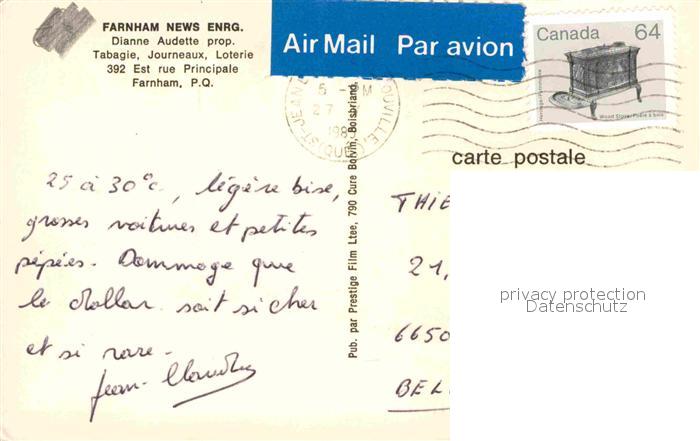 FARNHAM NEWS ENRG.
Dianne Audette prop.
Tabagie, Journeaux, Loterie
392 Est rue Principale
Farnham, P.Q.
Air Mail Par avion
Canada 64
Heritage Patrimoine
Wood Stove/Poêle à bois
carte postale
25 à 30°c, légère bise,
grosses voitures et petites
pépées. Dommage que
le dollar soit si cher
et si rare.
Jean-Claude
Pub. par Prestige Film Ltee, 790 Cure Boivin, Boisbriand,
THIE
21,
6650
BEL
privacy protection
Datenschutz